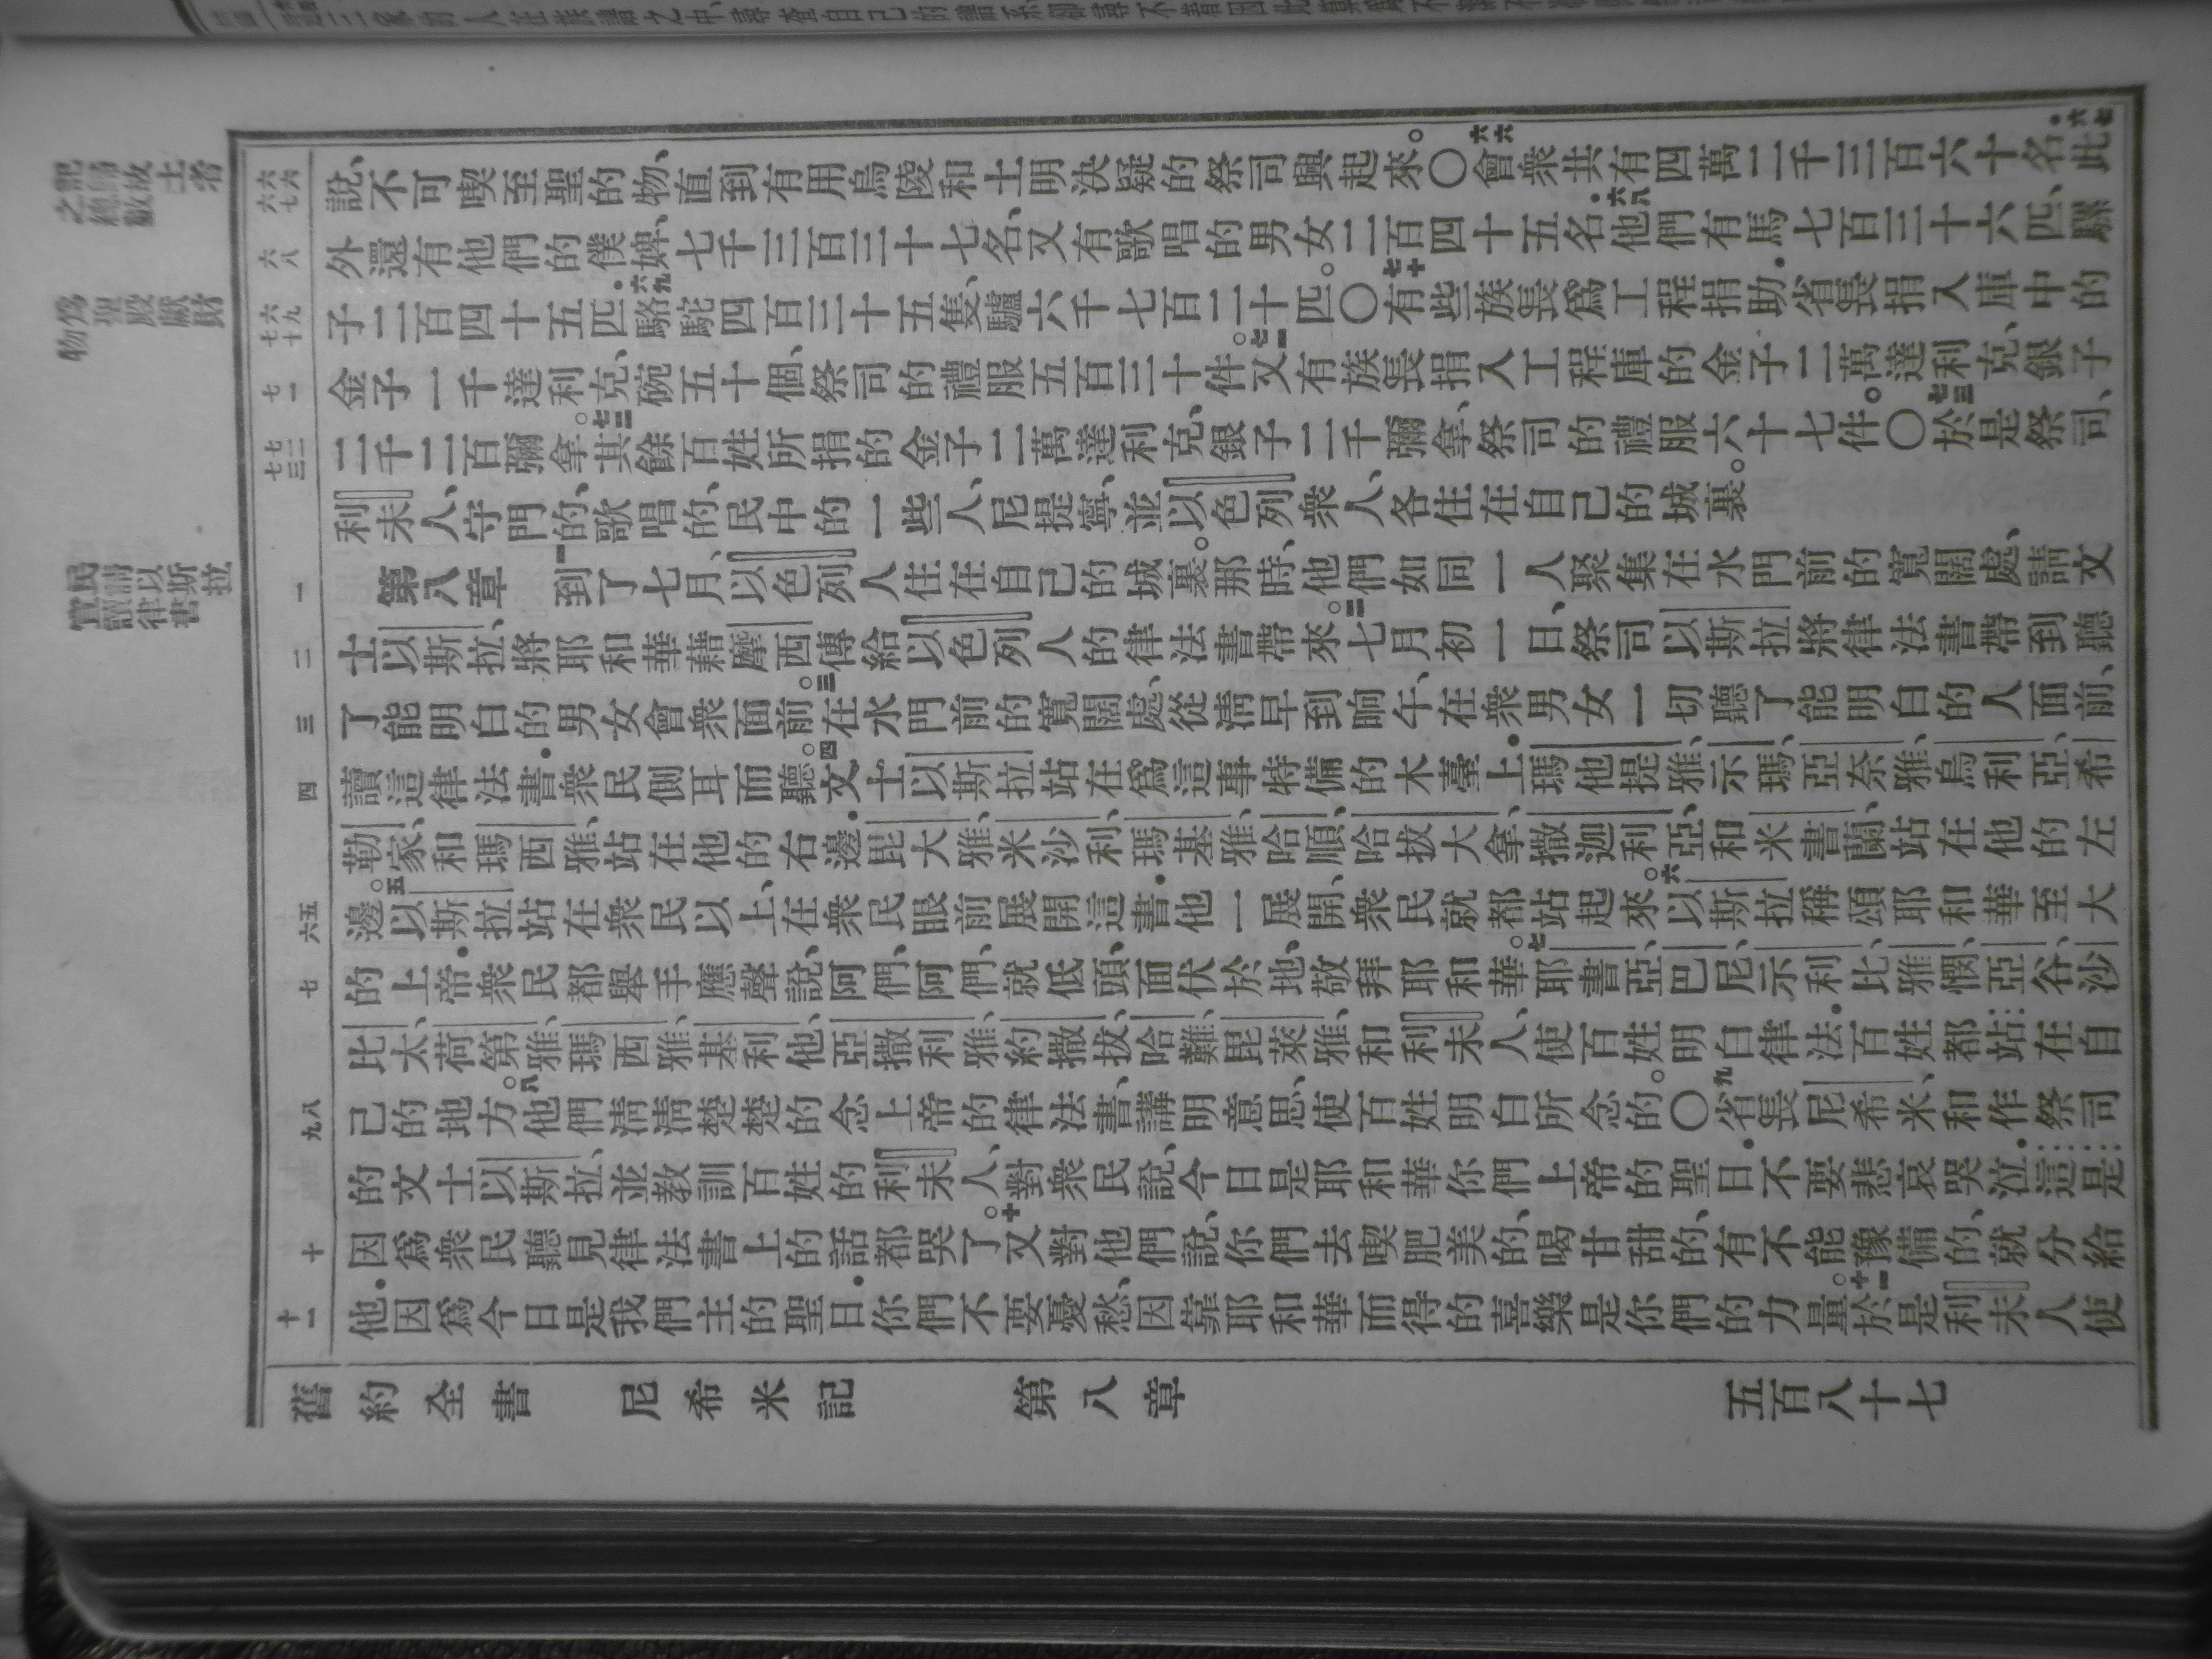 說、不可喫至聖的物、直到有用烏陵和土明決疑的祭司興起來。〇六六會衆共有四萬二千三百六十名.六七此
外還有他們的僕婢、七千三百三十七名、又有歌唱的男女二百四十五名.六八他們有馬七百三十六匹、騾
子二百四十五匹.六九駱駝四百三十五隻、驢六千七百二十匹。〇七十有些族長爲工程捐助.省長捐入庫中的
金子一千達利克、碗五十個、祭司的禮服五百三十件。七一又有族長捐入工程庫的金子二萬達利克、銀子
二千二百彌拿。七二其餘百姓所捐的金子二萬達利克、銀子二千彌拿、祭司的禮服六十七件。〇七三於是祭司、
利未人、守門的、歌唱的、民中的一些人、尼提寧、並以色列衆人、各住在自己的城裏。
第八章 一到了七月、以色列人住在自己的城裏。那時、他們如同一人聚集在水門前的寬闊處、請文
士以斯拉、將耶和華藉摩西傳給以色列人的律法書帶來。二七月初一日、祭司以斯拉將律法書帶到聽
了能明白的男女會衆面前。三在水門前的寬闊處、從淸早到晌午、在衆男女一切聽了能明白的人面前、
讀這律法書.衆民側耳而聽。四文士以斯拉站在爲這事特備的木臺上.瑪他提雅、示瑪、亞奈雅、烏利亞、希
勒家、和瑪西雅、站在他的右邊.毘大雅、米沙利、瑪基雅、哈順、哈拔大拿、撒迦利亞、和米書蘭、站在他的左
邊。五以斯拉站在衆民以上、在衆民眼前展開這書.他一展開、衆民就都站起來。六以斯拉稱頌耶和華至大
的上帝.衆民都舉手應聲說、阿們、阿們、就低頭、面伏於地、敬拜耶和華。七耶書亞、巴尼、示利比、雅憫、亞谷、沙
比太、荷第雅、瑪西雅、基利他、亞撒利雅、約撒拔、哈難、毘萊雅、和利未人、使百姓明白律法.百姓都站在自
己的地方。八他們淸淸楚楚的念上帝的律法書、講明意思、使百姓明白所念的。〇九省長尼希米、和作祭司
的文士以斯拉、並教訓百姓的利未人、對衆民說、今日是耶和華你們上帝的聖日.不要悲哀哭泣.這是
因爲衆民聽見律法書上的話都哭了。十又對他們說、你們去喫肥美的、喝甘甜的、有不能豫備的、就分給
他.因爲今日是我們主的聖日.你們不要憂愁、因靠耶和華而得的喜樂是你們的力量。十一於是利未人使
舊約全書 尼希米記 第八章 五百八十七